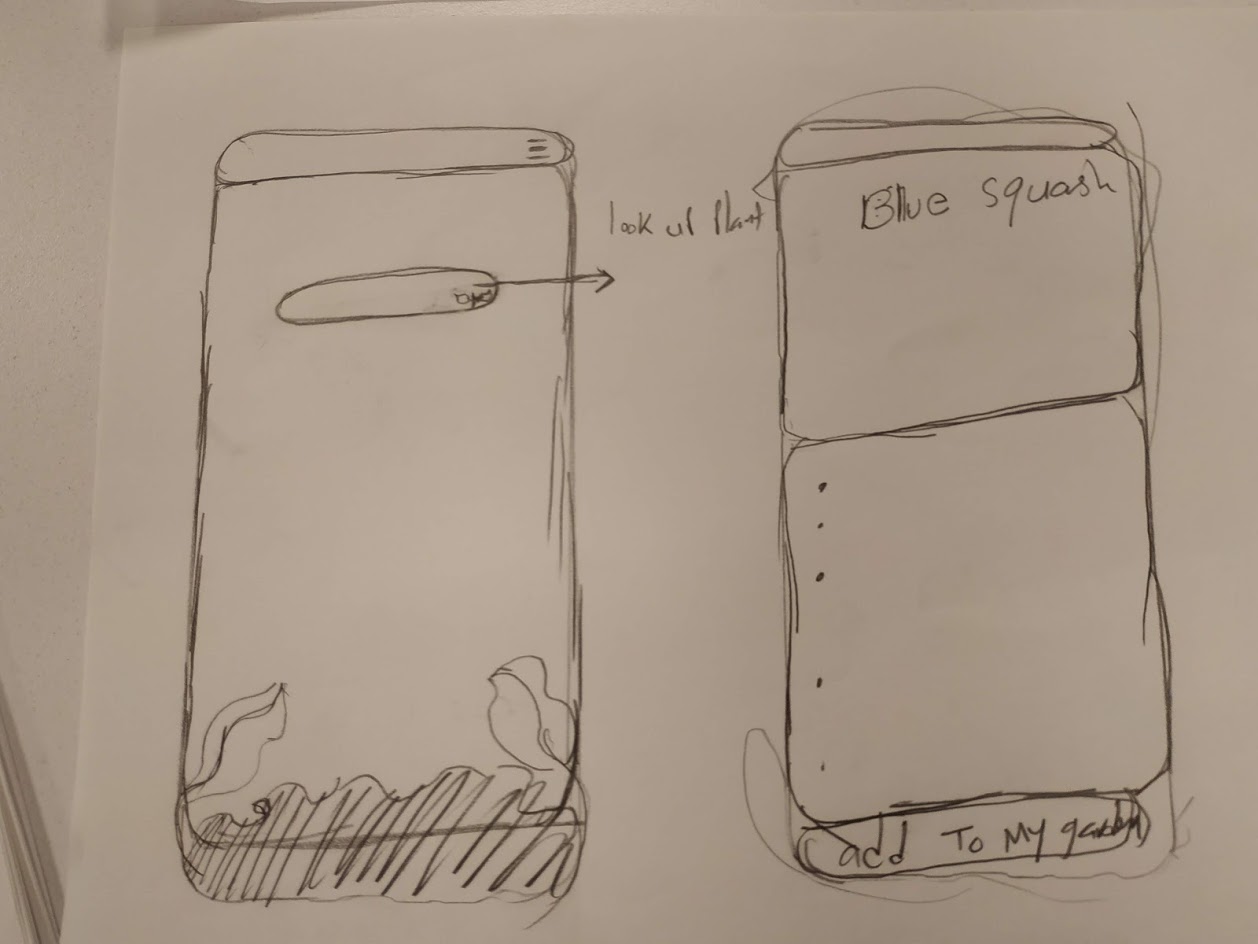 look up Plant
Blue squash
add To My garden